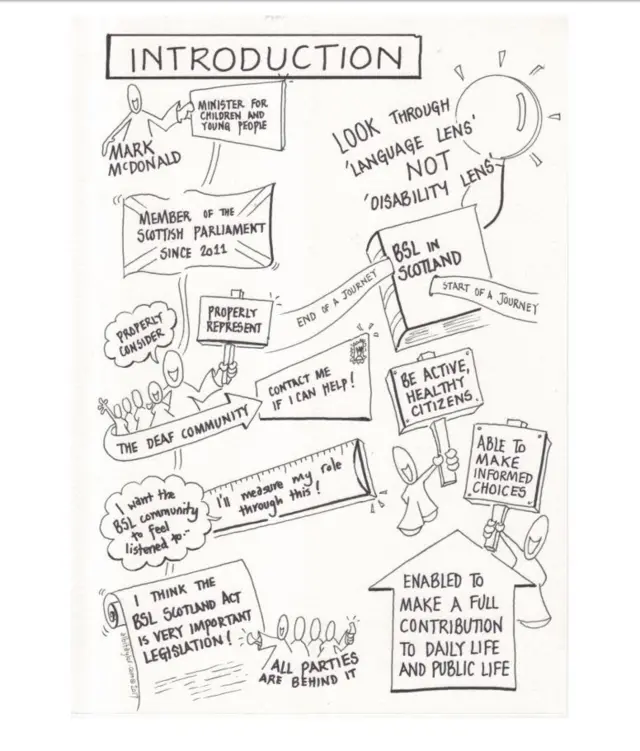 INTRODUCTION
MINISTER FOR
CHILDREN AND
YOUNG PEOPLE
MARK
McDONALD
MEMBER OF THE
SCOTTISH PARLIAMENT
SINCE 2011
LOOK THROUGH
'LANGUAGE LENS'
NOT
'DISABILITY LENS'
BSL IN
SCOTLAND
END OF A JOURNEY
START OF A JOURNEY
PROPERLY
CONSIDER
PROPERLY
REPRESENT
THE DEAF COMMUNITY
CONTACT ME
IF I CAN HELP!
BE ACTIVE,
HEALTHY
CITIZENS
ABLE TO
MAKE
INFORMED
CHOICES
I want the
BSL community
to feel
listened to..
I'll measure my role
through this!
I THINK THE
BSL SCOTLAND ACT
IS VERY IMPORTANT
LEGISLATION!
ALL PARTIES
ARE BEHIND IT
ENABLED TO
MAKE A FULL
CONTRIBUTION
TO DAILY LIFE
AND PUBLIC LIFE